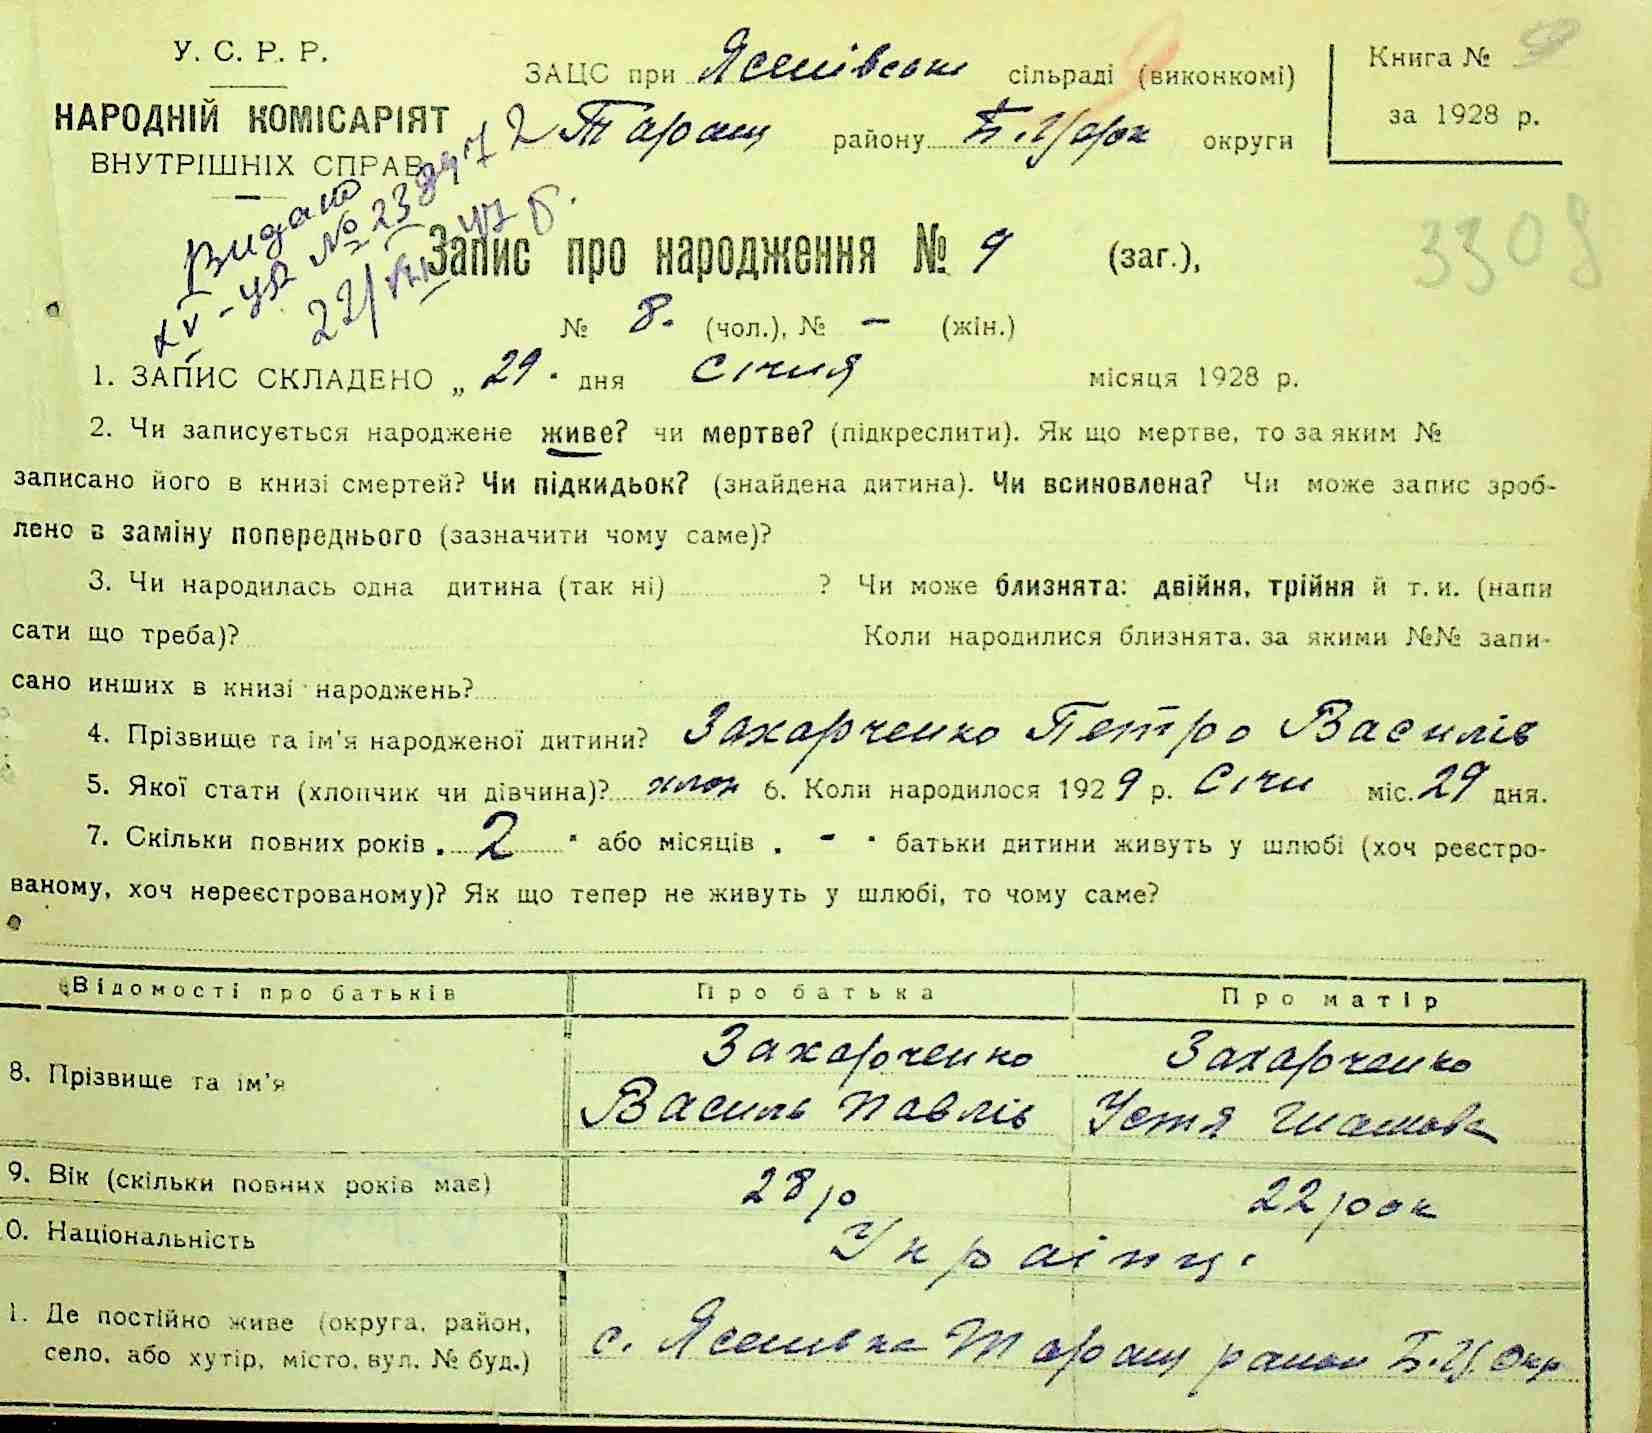 У. С. Р. Р.
НАРОДНІЙ КОМІСАРІЯТ
ВНУТРІШНІХ СПРАВ
ЗАЦС при Ясенівські сільраді (виконкомі)
Таращ району Б. Церк округи
Книга №
за 1928 р.
Видано
№ 23
22/VII 47 р.
3309
Запис про народження № 9 (заг.),
№ 8. (чол.), № — (жін.)
1. ЗАПИС СКЛАДЕНО „ 29 " дня Січня місяця 1928 р.
2. Чи записується народжене живе? чи мертве? (підкреслити). Як що мертве, то за яким №
записано його в книзі смертей? Чи підкидьок? (знайдена дитина). Чи всиновлена? Чи може запис зроб-
лено в заміну попереднього (зазначити чому саме)?
3. Чи народилась одна дитина (так ні) ? Чи може близнята: двійня, трійня й т. и. (напи
сати що треба)? Коли народилися близнята, за якими №№ запи-
сано инших в книзі народжень?
4. Прізвище та ім'я народженої дитини? Захарченко Петро Василів
5. Якої стати (хлопчик чи дівчина)? хлоп 6. Коли народилося 1929 р. Січн міс. 29 дня.
7. Скільки повних років „ 2 " або місяців „ - " батьки дитини живуть у шлюбі (хоч реєстро-
ваному, хоч нереєстрованому)? Як що тепер не живуть у шлюбі, то чому саме?
Відомості про батьків Про батька Про матір
8. Прізвище та ім'я Захарченко Захарченко
Василь Павлів Устя
9. Вік (скільки повних років має) 28 р 22 рок
0. Національність Українц.
1. Де постійно живе (округа, район,
село, або хутір, місто, вул. № буд.) с. Ясенівка Таращ район Б. Ц. Окр